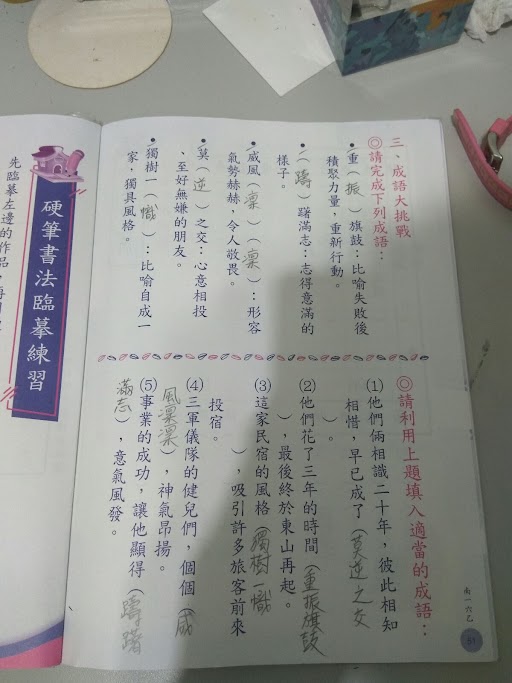 三、成語大挑戰
◎請完成下列成語：
•重（振）旗鼓：比喻失敗後
積聚力量，重新行動。
•（躊）躇滿志：志得意滿的
樣子。
•威風（凜）（凜）：形容
氣勢赫赫，令人敬畏。
•莫（逆）之交：心意相投
、至好無嫌的朋友。
•獨樹一（幟）：比喻自成一
家，獨具風格。
◎請利用上題填入適當的成語：
⑴他們倆相識二十年，彼此相知
相惜，早已成了（莫逆之交
）。
⑵他們花了三年的時間（重振旗鼓
），最後終於東山再起。
⑶這家民宿的風格（獨樹一幟
），吸引許多旅客前來
投宿。
⑷三軍儀隊的健兒們，個個（威
風凜凜），神氣昂揚。
⑸事業的成功，讓他顯得（躊躇
滿志），意氣風發。
南一六乙
51
硬筆書法臨摹練習
先臨摹左邊的作品